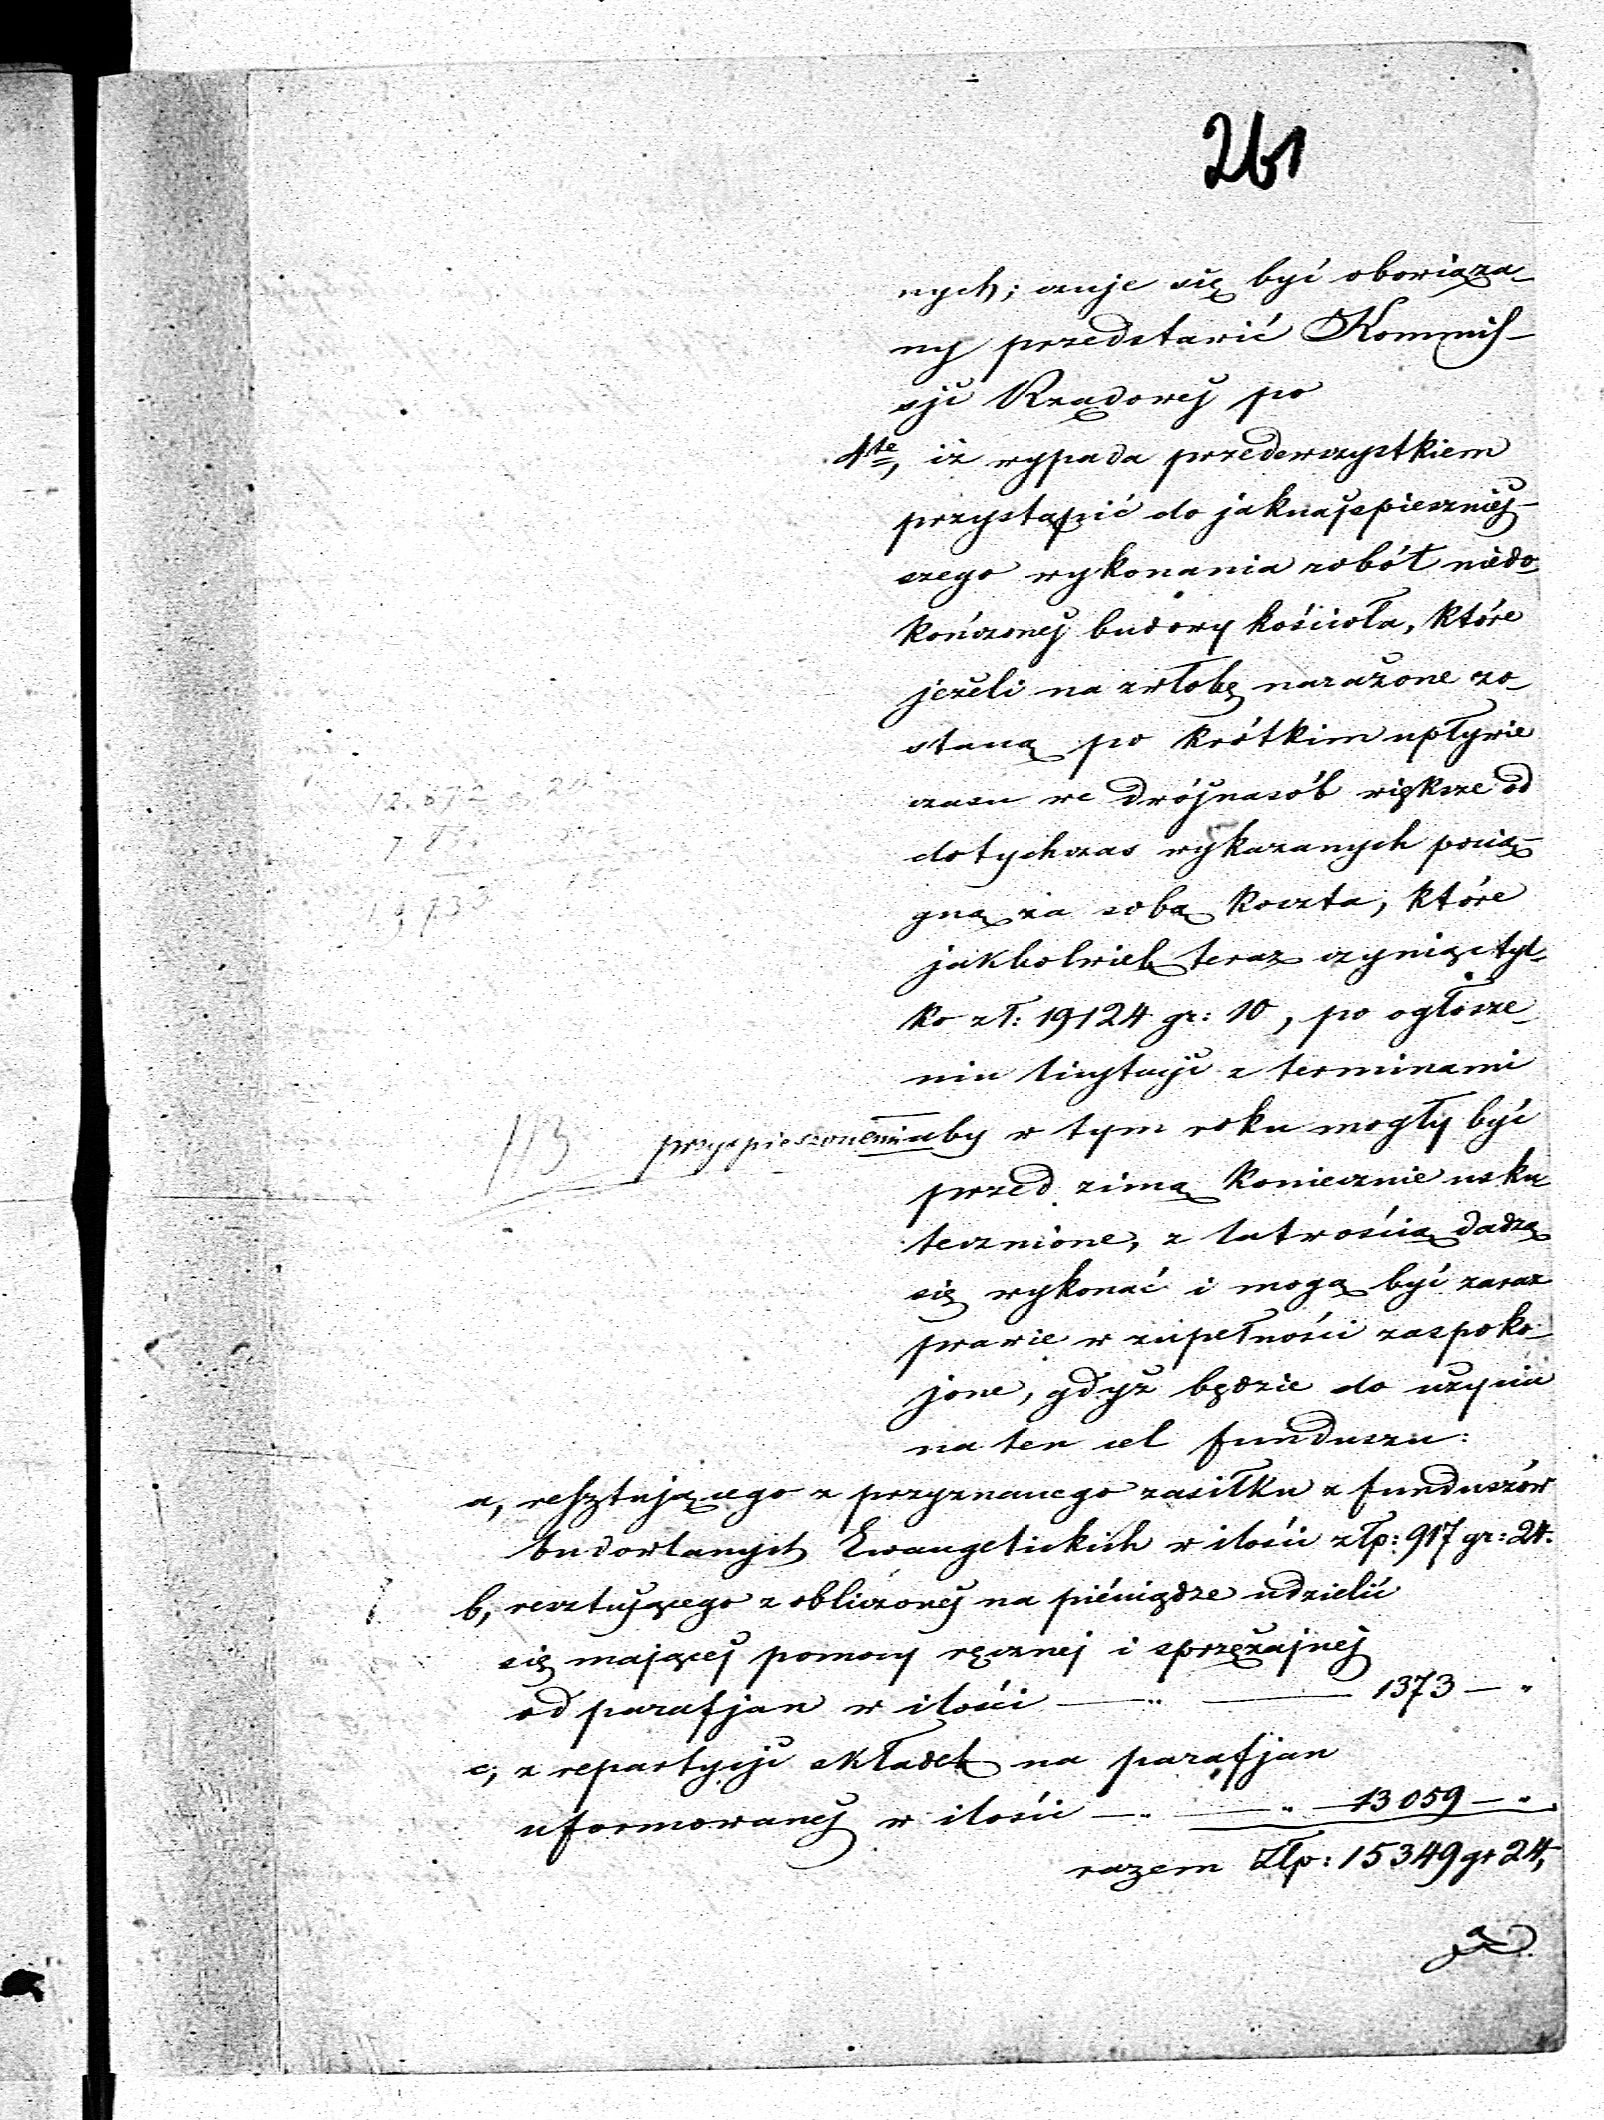 261
nych; czuje się być obowiąza-
ny przedstawić Kommis-
syi Rządowej po
4te, iż wypada przedewszystkiem
przystąpić do jaknajspieszniej-
szego wykonania robót niedo-
kończonej budowy kościoła, które
jeżeli na zwłokę narażone zo-
staną po krótkim upływie
czasu we dwójnasób większe od
dotychczas wykazanych pocią-
gną za sobą koszta, które
jakkolwiek teraz czyniąc tyl-
ko zł: 19124 gr: 10, po ogłosze-
niu licytacyi z terminami
przyspieszonemi aby w tym roku mogły być
113
przed zimą koniecznie usku-
tecznione, z łatwością dadzą
się wykonać i mogą być zaraz
prawie w zupełności zaspoko-
jone, gdyż będzie do użycia
na ten cel funduszu:
a, resztującego z przyznanego zasiłku z funduszów
budowlanych Ewangelickich w ilości złp: 917 gr: 24.
b, resztującego z obliczonej na pieniądze udzielić
się mającej pomocy ręcznej i sprzężajnej
od parafjan w ilości — „ — 1373 — „
c, z repartycyi składek na parafjan
uformowanej w ilości — „ — „ — 13059 — „
razem Złp: 15349 gr 24,